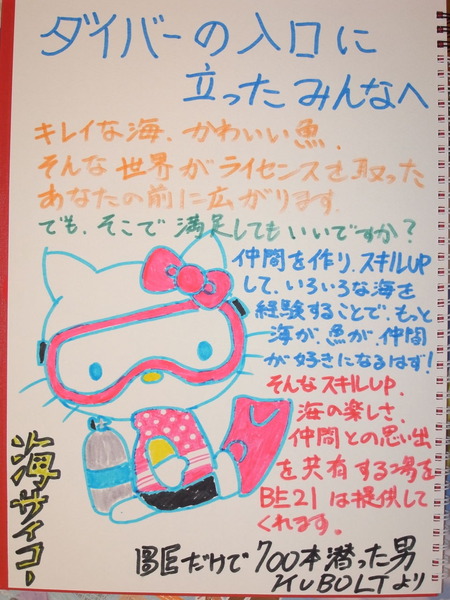 ダイバーの入口に
立ったみんなへ
キレイな海、かわいい魚、
そんな世界がライセンスを取った
あなたの前に広がります。
でも、そこで満足してもいいですか？
仲間を作り、スキルUP
して、いろいろな海を
経験することで、もっと
海が、魚が、仲間
が好きになるはず！
そんなスキルUP、
海の楽しさ、
仲間との思い出
を共有する場を
BE21は提供して
くれます。
海サイコー
BEだけで700本潜った男
KUBOLTより